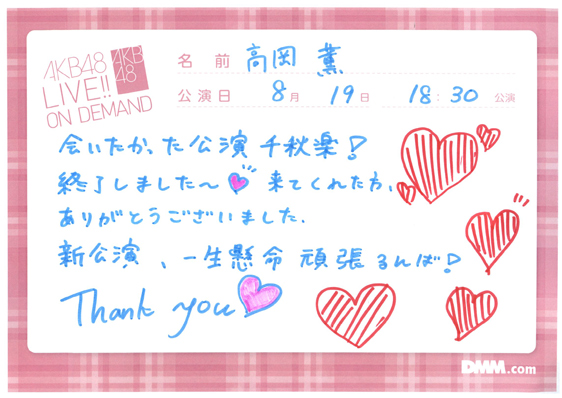 AKB48
LIVE!!
ON DEMAND
AKB
48
名前 高岡 薫
公演日 8月 19日 18:30 公演
会いたかった公演 千秋楽!
終了しました〜 来てくれた方、
ありがとうございました.
新公演、一生懸命 頑張るんば!
Thank you
DMM.com